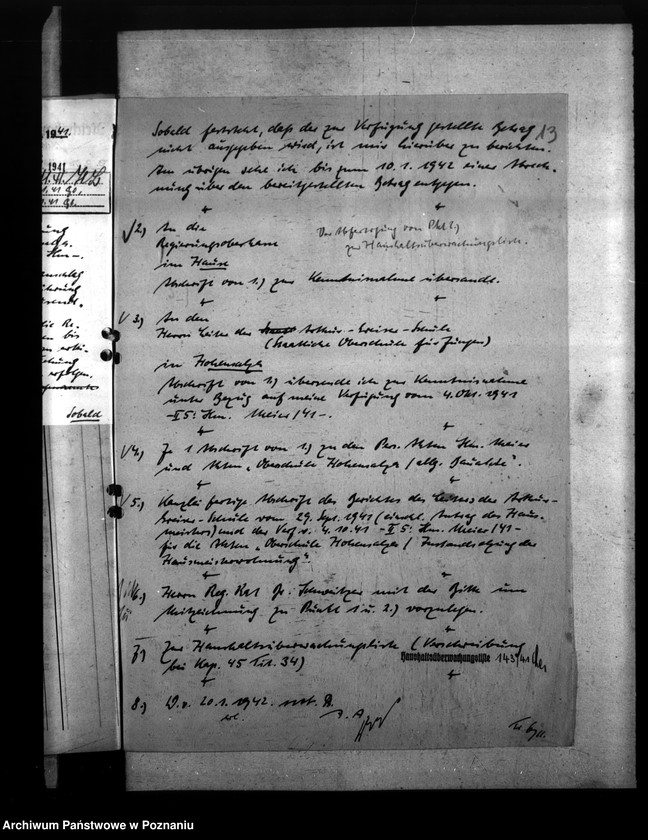 1941
1941
Sobald feststeht, daß der zur Verfügung gestellte Betrag 13
nicht ausgegeben wird, ist mir hierüber zu berichten.
Im übrigen sehe ich bis zum 10.1.1942 einer Abrech-
nung über den bereitgestellten Betrag entgegen.
√2.) An die
Regierungsoberkasse
im Hause
Vor Abfertigung von Pkt 2.)
zur Haushaltsüberwachungsliste.
Abschrift von 1.) zur Kenntnisnahme übersandt.
√3.) An den
Herrn Leiter der Arthur-Greiser-Schule
(Staatliche Oberschule für Jungen)
in Hohensalza
Abschrift von 1.) übersende ich zur Kenntnisnahme
unter Bezug auf meine Verfügung vom 4. Okt. 1941
-II 5: Hm. Meier/41-.
√4.) Je 1 Abschrift von 1.) zu den Pers. Akten Hm. Meier
und Akten „Oberschule Hohensalza/allg. Bauakte".
√5.) Kanzlei fertige Abschrift des Berichtes des Leiters der Arthur-
Greiser-Schule vom 29. Sept. 1941 (einschl. Antrag des Haus-
meisters) und der Verf. v. 4.10.41 -II 5: Hm. Meier/41-
für die Akten „Oberschule Hohensalza/Instandsetzung der
Hausmeisterwohnung".
6.) Herrn Reg. Rat Dr. Schweitzer mit der Bitte um
Mitzeichnung zu Punkt 1 u. 2.) vorzulegen.
7.) Zur Haushaltsüberwachungsliste (Verschreibung
bei Kap. 45 Tit. 34)
Haushaltsüberwachungsliste 143/41
8.) W.v. 20.1.1942
I.A.
Sobald
Archiwum Państwowe w Poznaniu